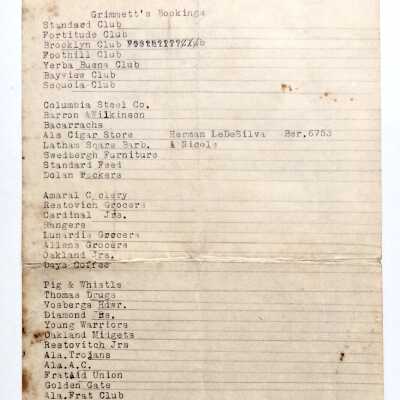 Grimmett's Bookings
Standard Club
Fortitude Club
Brooklyn Club
Foothill Club
Yerba Buena Club
Bayview Club
Sequoia Club
Columbia Steel Co.
Barron &Wilkinson
Bacarrachs
Als Cigar Store Herman LeDeSilva Ber.6753
Latham Sqare Barb. & Nicols
Sweibergh Furniture
Standard Feed
Dolan Wockers
Amaral
Restovich Grocers
Cardinal Jrs.
Rangers
Lunardis Grocers
Allens Grocers
Oakland Jrs.
Days Coffee
Pig & Whistle
Thomas Drugs
Vosbergs Hdwr.
Diamond Jrs.
Young Warriors
Oakland Midgets
Restovitch Jrs
Ala.Trojans
Ala.A.C.
FratAid Union
Golden Gate
Ala.Frat Club